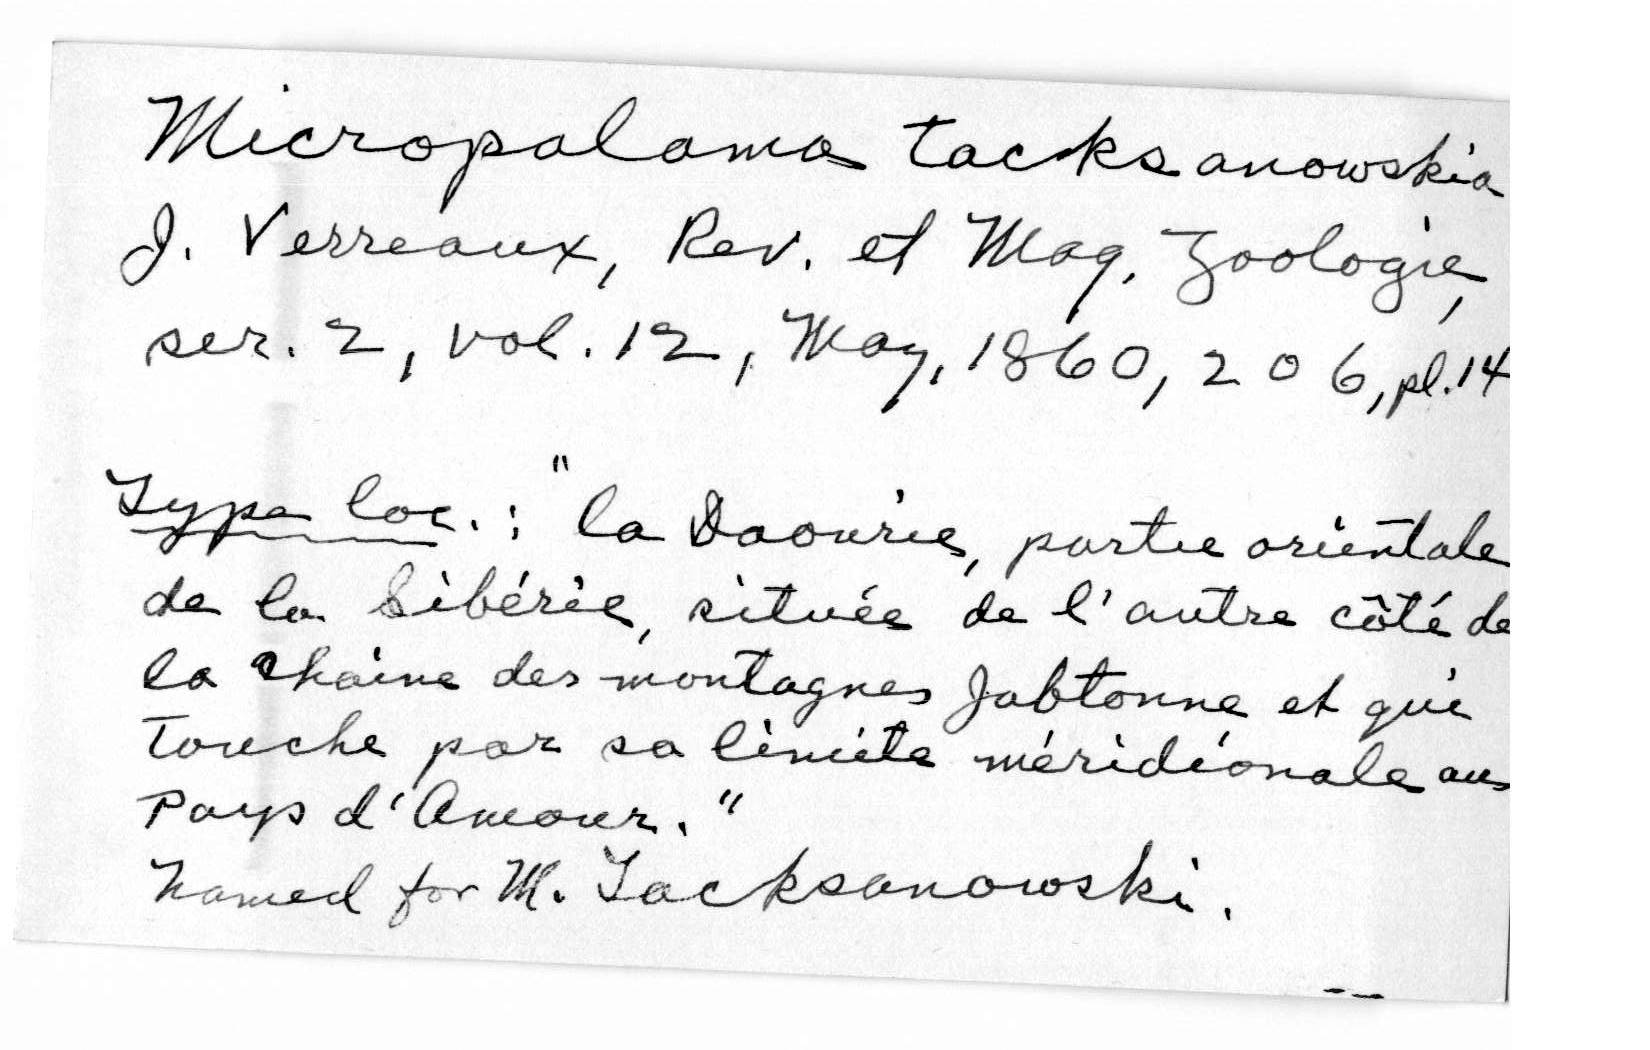 Micropalama tacksanowskia
J. Verreaux, Rev. et Mag. Zoologie,
ser. 2, vol. 12, May, 1860, 206, pl. 14
Type loc.: "la Daourie, partie orientale
de la Sibérie, située de l'autre côté de
la chaine des montagnes Jabtonne et qui
touche par sa limite méridionale au
Pays d'Amour."
Named for M. Tacksanowski.